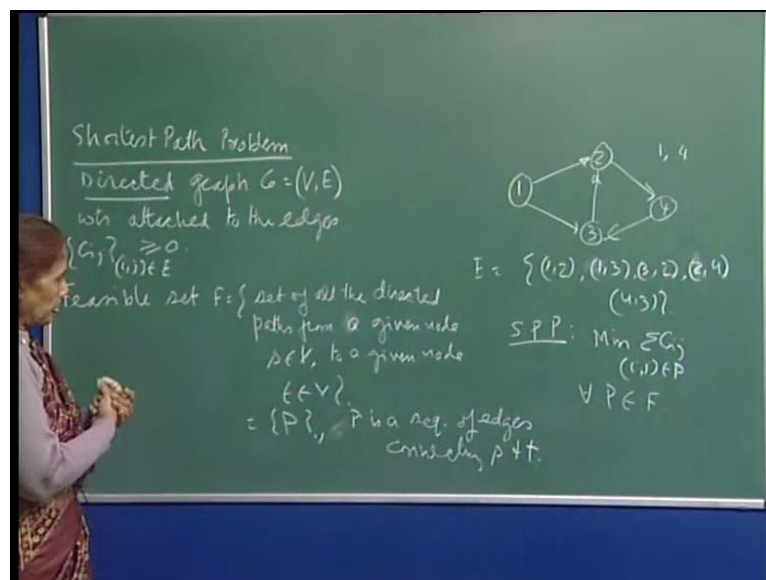 Shortest Path Problem
Directed graph G = (V, E)
attached to the edges
{Cij}(i,j)∈E ≥ 0.
Feasible set F = { set of all the directed
paths from a given node
s∈V, to a given node
t∈V}.
= {P}, P is a seq. of edges
connecting s & t.
1
2
3
4
1, 4
E = {(1,2), (1,3), (3,2), (2,4)
(4,3)}.
SPP: Min ΣCij
(i,j)∈P
∀ P∈F